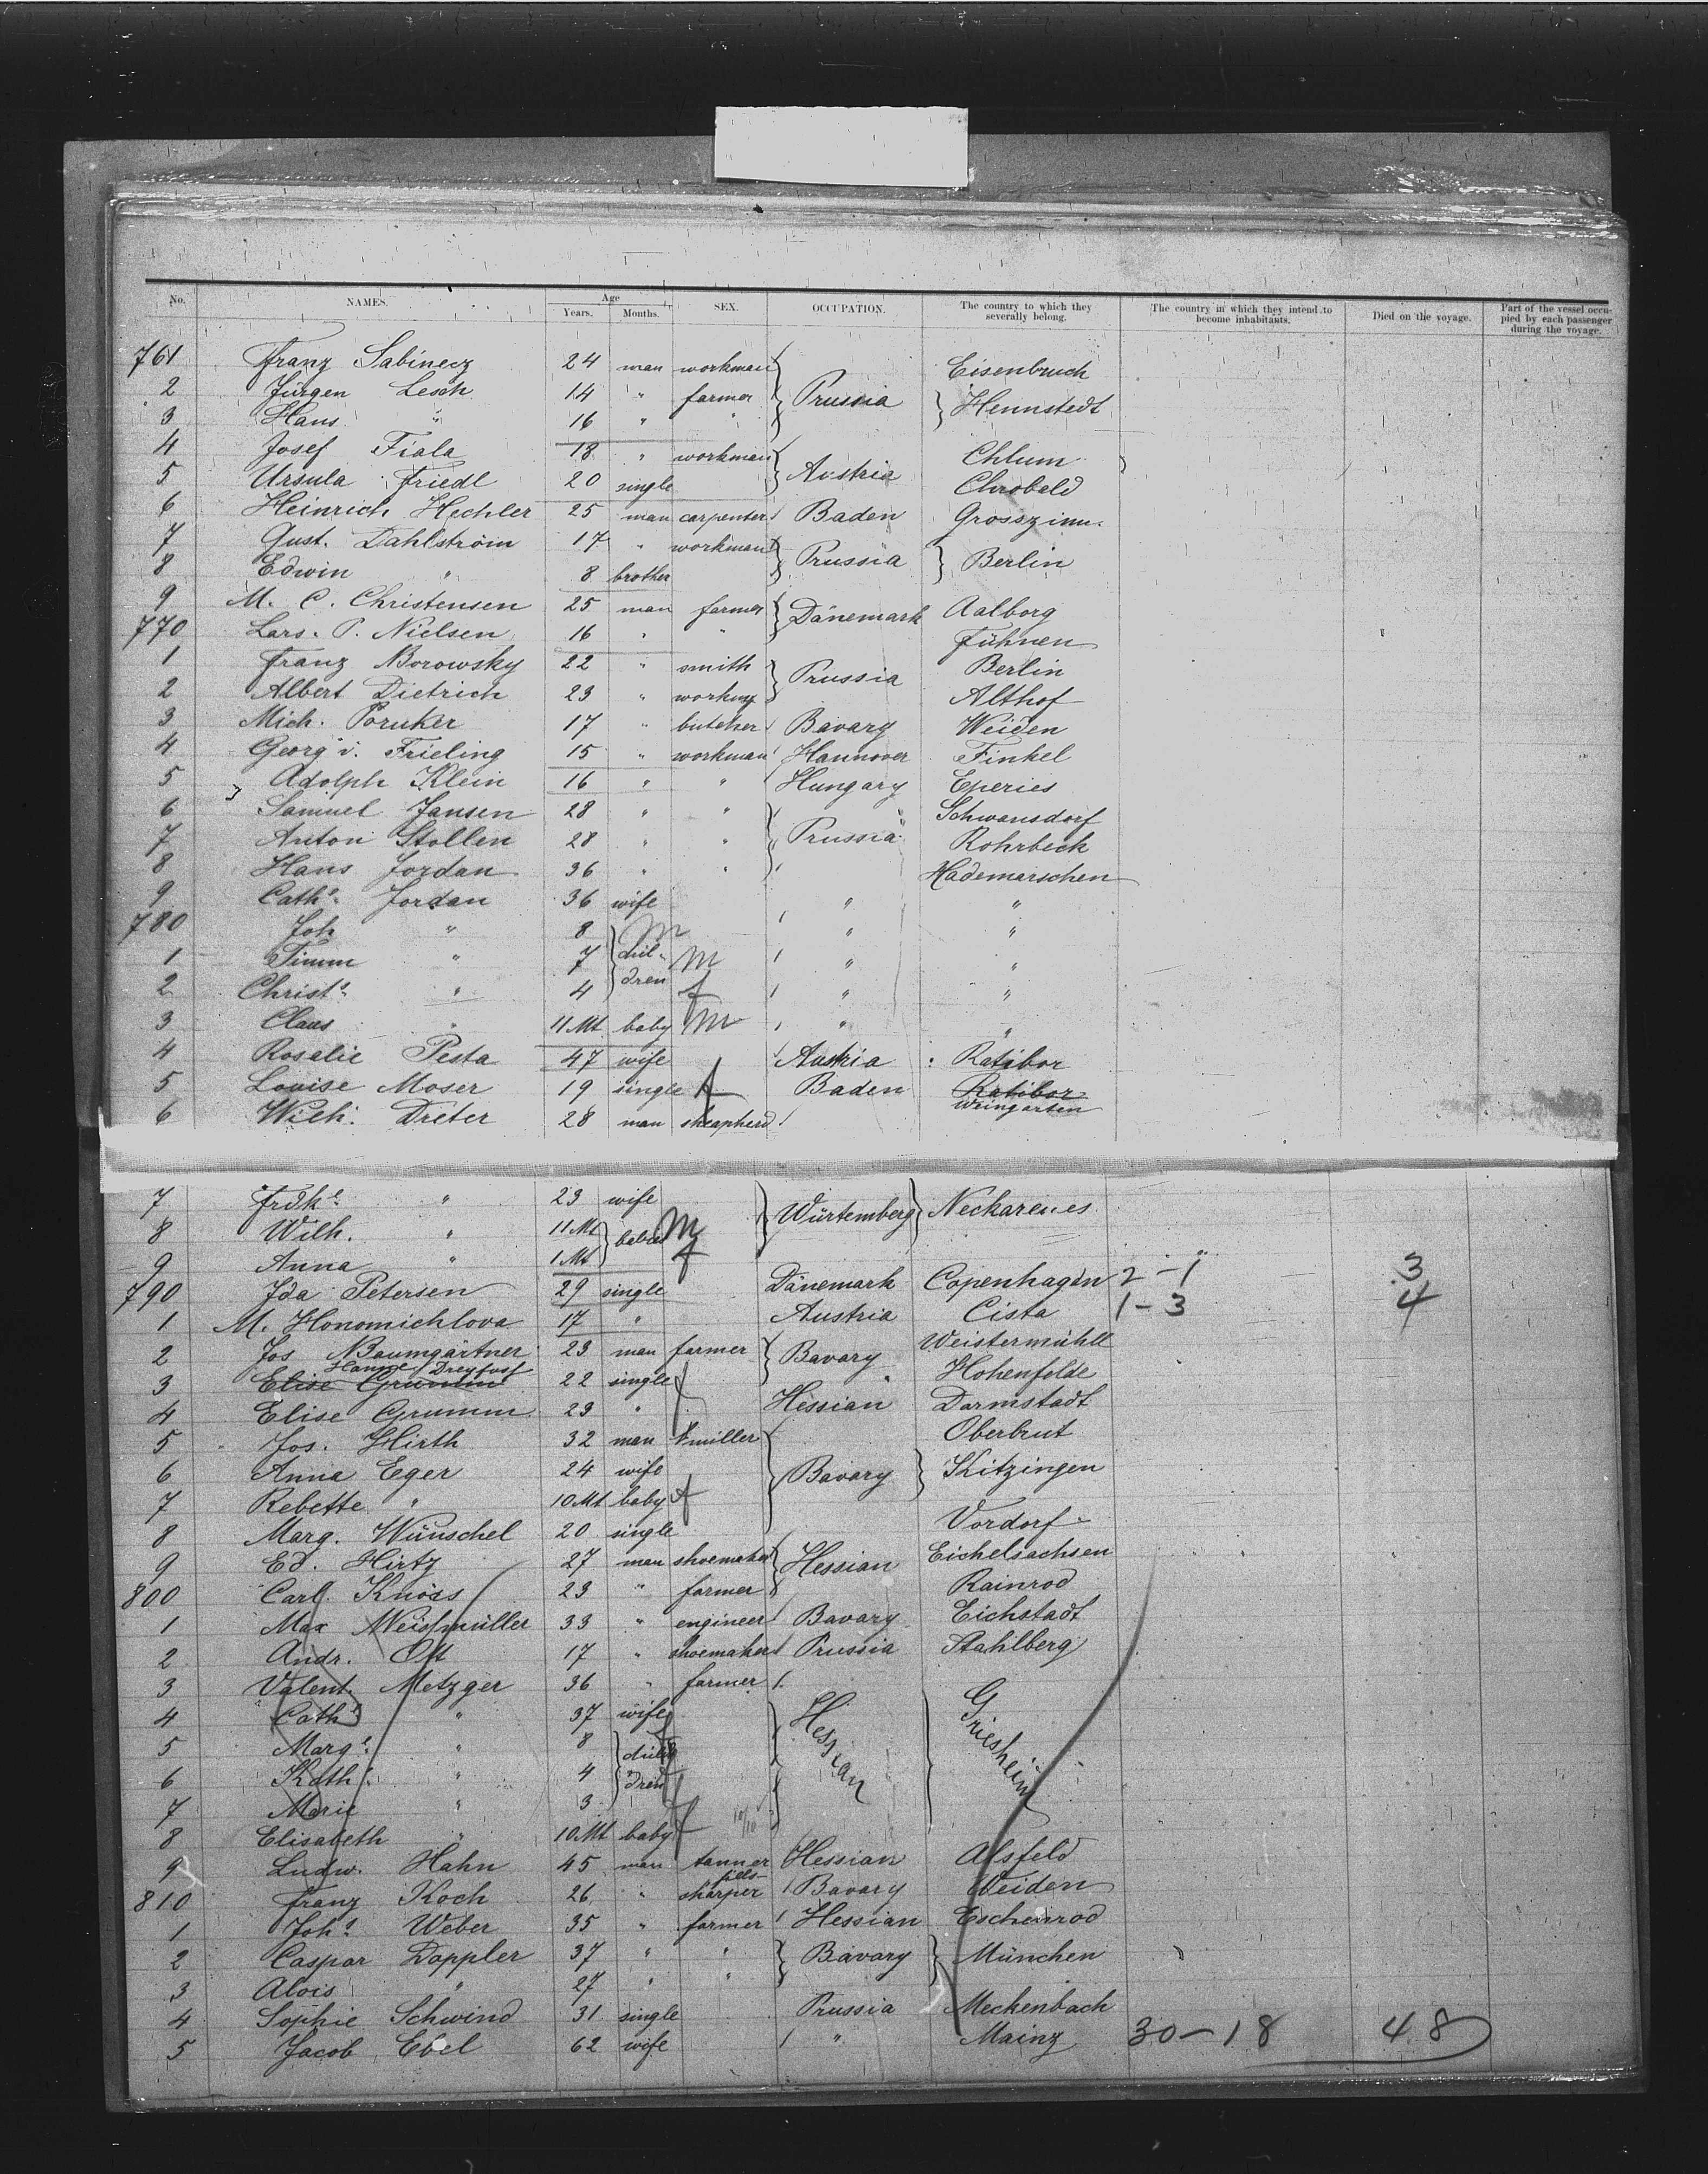 No. NAMES. Age Years. Months. SEX. OCCUPATION. The country to which they severally belong. The country in which they intend to become inhabitants. Died on the voyage. Part of the vessel occupied by each passenger during the voyage.
761 Franz Sabinecz 24 man workman Eisenbruch
2 Jürgen Lesch 14 " farmer Prussia Hennstedt
3 Hans " 16 " "
4 Josef Fiala 18 " workman Chlum
5 Ursula Friedl 20 single Austria Chrobold
6 Heinrich Hechler 25 man carpenter Baden Grosszimm.
7 Gust. Dahlström 17 " workman Prussia Berlin
8 Edwin " 8 brother
9 M. C. Christensen 25 man farmer Dänemark Aalborg
770 Lars. P. Nielsen 16 " " Fühnen
1 Franz Borowsky 22 " smith Prussia Berlin
2 Albert Dietrich 23 " workmg Althof
3 Mich. Poruker 17 " butcher Bavary Weiden
4 Georg v. Frieling 15 " workman Hannover Finkel
5 Adolph Klein 16 " " Hungary Eperies
6 Samuel Jansen 28 " " Schwansdorf
7 Anton Stollen 28 " " Prussia Rohrbeck
8 Hans Jordan 36 " " Hademarschen
9 Cath? Jordan 36 wife " "
780 Joh " 8 m " "
1 Timm " 7 chil- m " "
2 Christ? " 4 dren f " "
3 Claus " 11 Mt baby m " "
4 Rosalie Pesta 47 wife Austria Ratibor
5 Louise Moser 19 single f Baden Ratibor Weingarten
6 Wilh. Dreter 28 man sheapherd
7 Frdk? " 23 wife Würtemberg Neckarenes
8 Wilh. " 11 Mt babies m
9 Anna " 1 Mt f
790 Ida Petersen 29 single Dänemark Copenhagen 2 - 1 3
1 M. Honomichlova 17 " Austria Cista 1 - 3 4
2 Jos Baumgärtner 23 man farmer Bavary Weistermühle
Hannje Dreyfuss
3 Elise Grumm 22 single f Hohenfelde
4 Elise Grumm 23 " Hessian Darmstadt
5 Jos. Hirth 32 man miller Oberbrut
6 Anna Eger 24 wife Bavary Kitzingen
7 Rebette " 10 Mt baby f
8 Marg. Wünschel 20 single Vordorf
9 Ed. Hirtz 27 man shoemaker Hessian Eichelsachsen
800 Carl Knöss 23 " farmer Rainrod
1 Max Weissmüller 33 " engineer Bavary Eichstadt
2 Andr. Ott 17 " shoemaker Prussia Stahlberg
3 Valent. Metzger 36 " farmer
4 Cath? " 37 wife Hessian Griesheim
5 Marg? " 8 chil-
6 Kath? " 4 dren
7 Marie " 3
8 Elisabeth " 10 Mt baby f
9 Ludw. Hahn 45 man tanner Hessian Alsfeld
810 Franz Koch 26 " fills- sharper Bavary Weiden
1 Joh? Weber 35 " farmer Hessian Eschenrod
2 Caspar Doppler 37 " " Bavary München
3 Alois " 27 " "
4 Sophie Schwind 31 single Prussia Meckenbach
5 Jacob Ebel 62 wife " Mainz 30 - 18 48